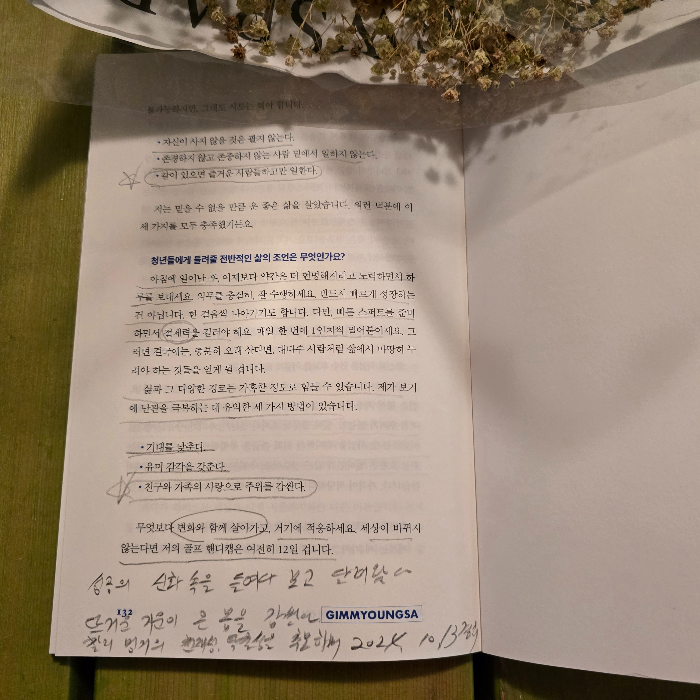 불가능하지만, 그래도 시도는 해야 합니다.
• 자신이 사지 않을 것은 팔지 않는다.
• 존경하지 않고 존중하지 않는 사람 밑에서 일하지 않는다.
• 같이 있으면 즐거운 사람들하고만 일한다.
저는 믿을 수 없을 만큼 운 좋은 삶을 살았습니다. 워런 덕분에 이
세 가지를 모두 충족했거든요.
청년들에게 들려줄 전반적인 삶의 조언은 무엇인가요?
아침에 일어난 후, 어제보다 약간은 더 현명해지려고 노력하면서 하
루를 보내세요. 의무를 충실히, 잘 수행하세요. 반드시 빠르게 성장하는
건 아닙니다. 한 걸음씩 나아가기도 합니다. 다만, 빠른 스퍼트를 준비
하면서 절제력을 길러야 해요. 매일 한 번에 1인치씩 벌어붙이세요. 그
러면 결국에는, 충분히 오래 산다면, 대다수 사람처럼 삶에서 마땅히 누
려야 하는 것들을 얻게 될 겁니다.
삶과 그 다양한 경로는 가혹할 정도로 힘들 수 있습니다. 제가 보기
에 난관을 극복하는 데 유익한 세 가지 방법이 있습니다.
• 기대를 낮춘다.
• 유머 감각을 갖춘다.
• 친구와 가족의 사랑으로 주위를 감싼다.
무엇보다 변화와 함께 살아가고, 거기에 적응하세요. 세상이 바뀌지
않는다면 저의 골프 핸디캡은 여전히 12일 겁니다.
성공의 신화 속을 들여다 보고
132
뜨거운 기운이 온 몸을
GIMMYOUNGSA
찰리 멍거의 2024 10, 13